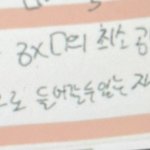 8x□의 최소공
으로 들어갈 수 없는 자